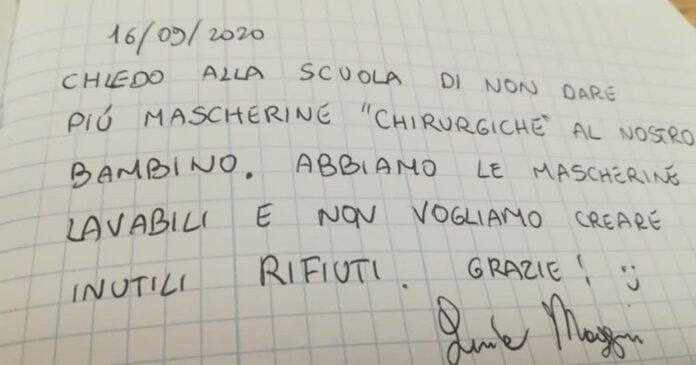 16/09/2020
CHIEDO ALLA SCUOLA DI NON DARE
PIÚ MASCHERINE "CHIRURGICHE" AL NOSTRO
BAMBINO. ABBIAMO LE MASCHERINE
LAVABILI E NON VOGLIAMO CREARE
INUTILI RIFIUTI. GRAZIE! :)